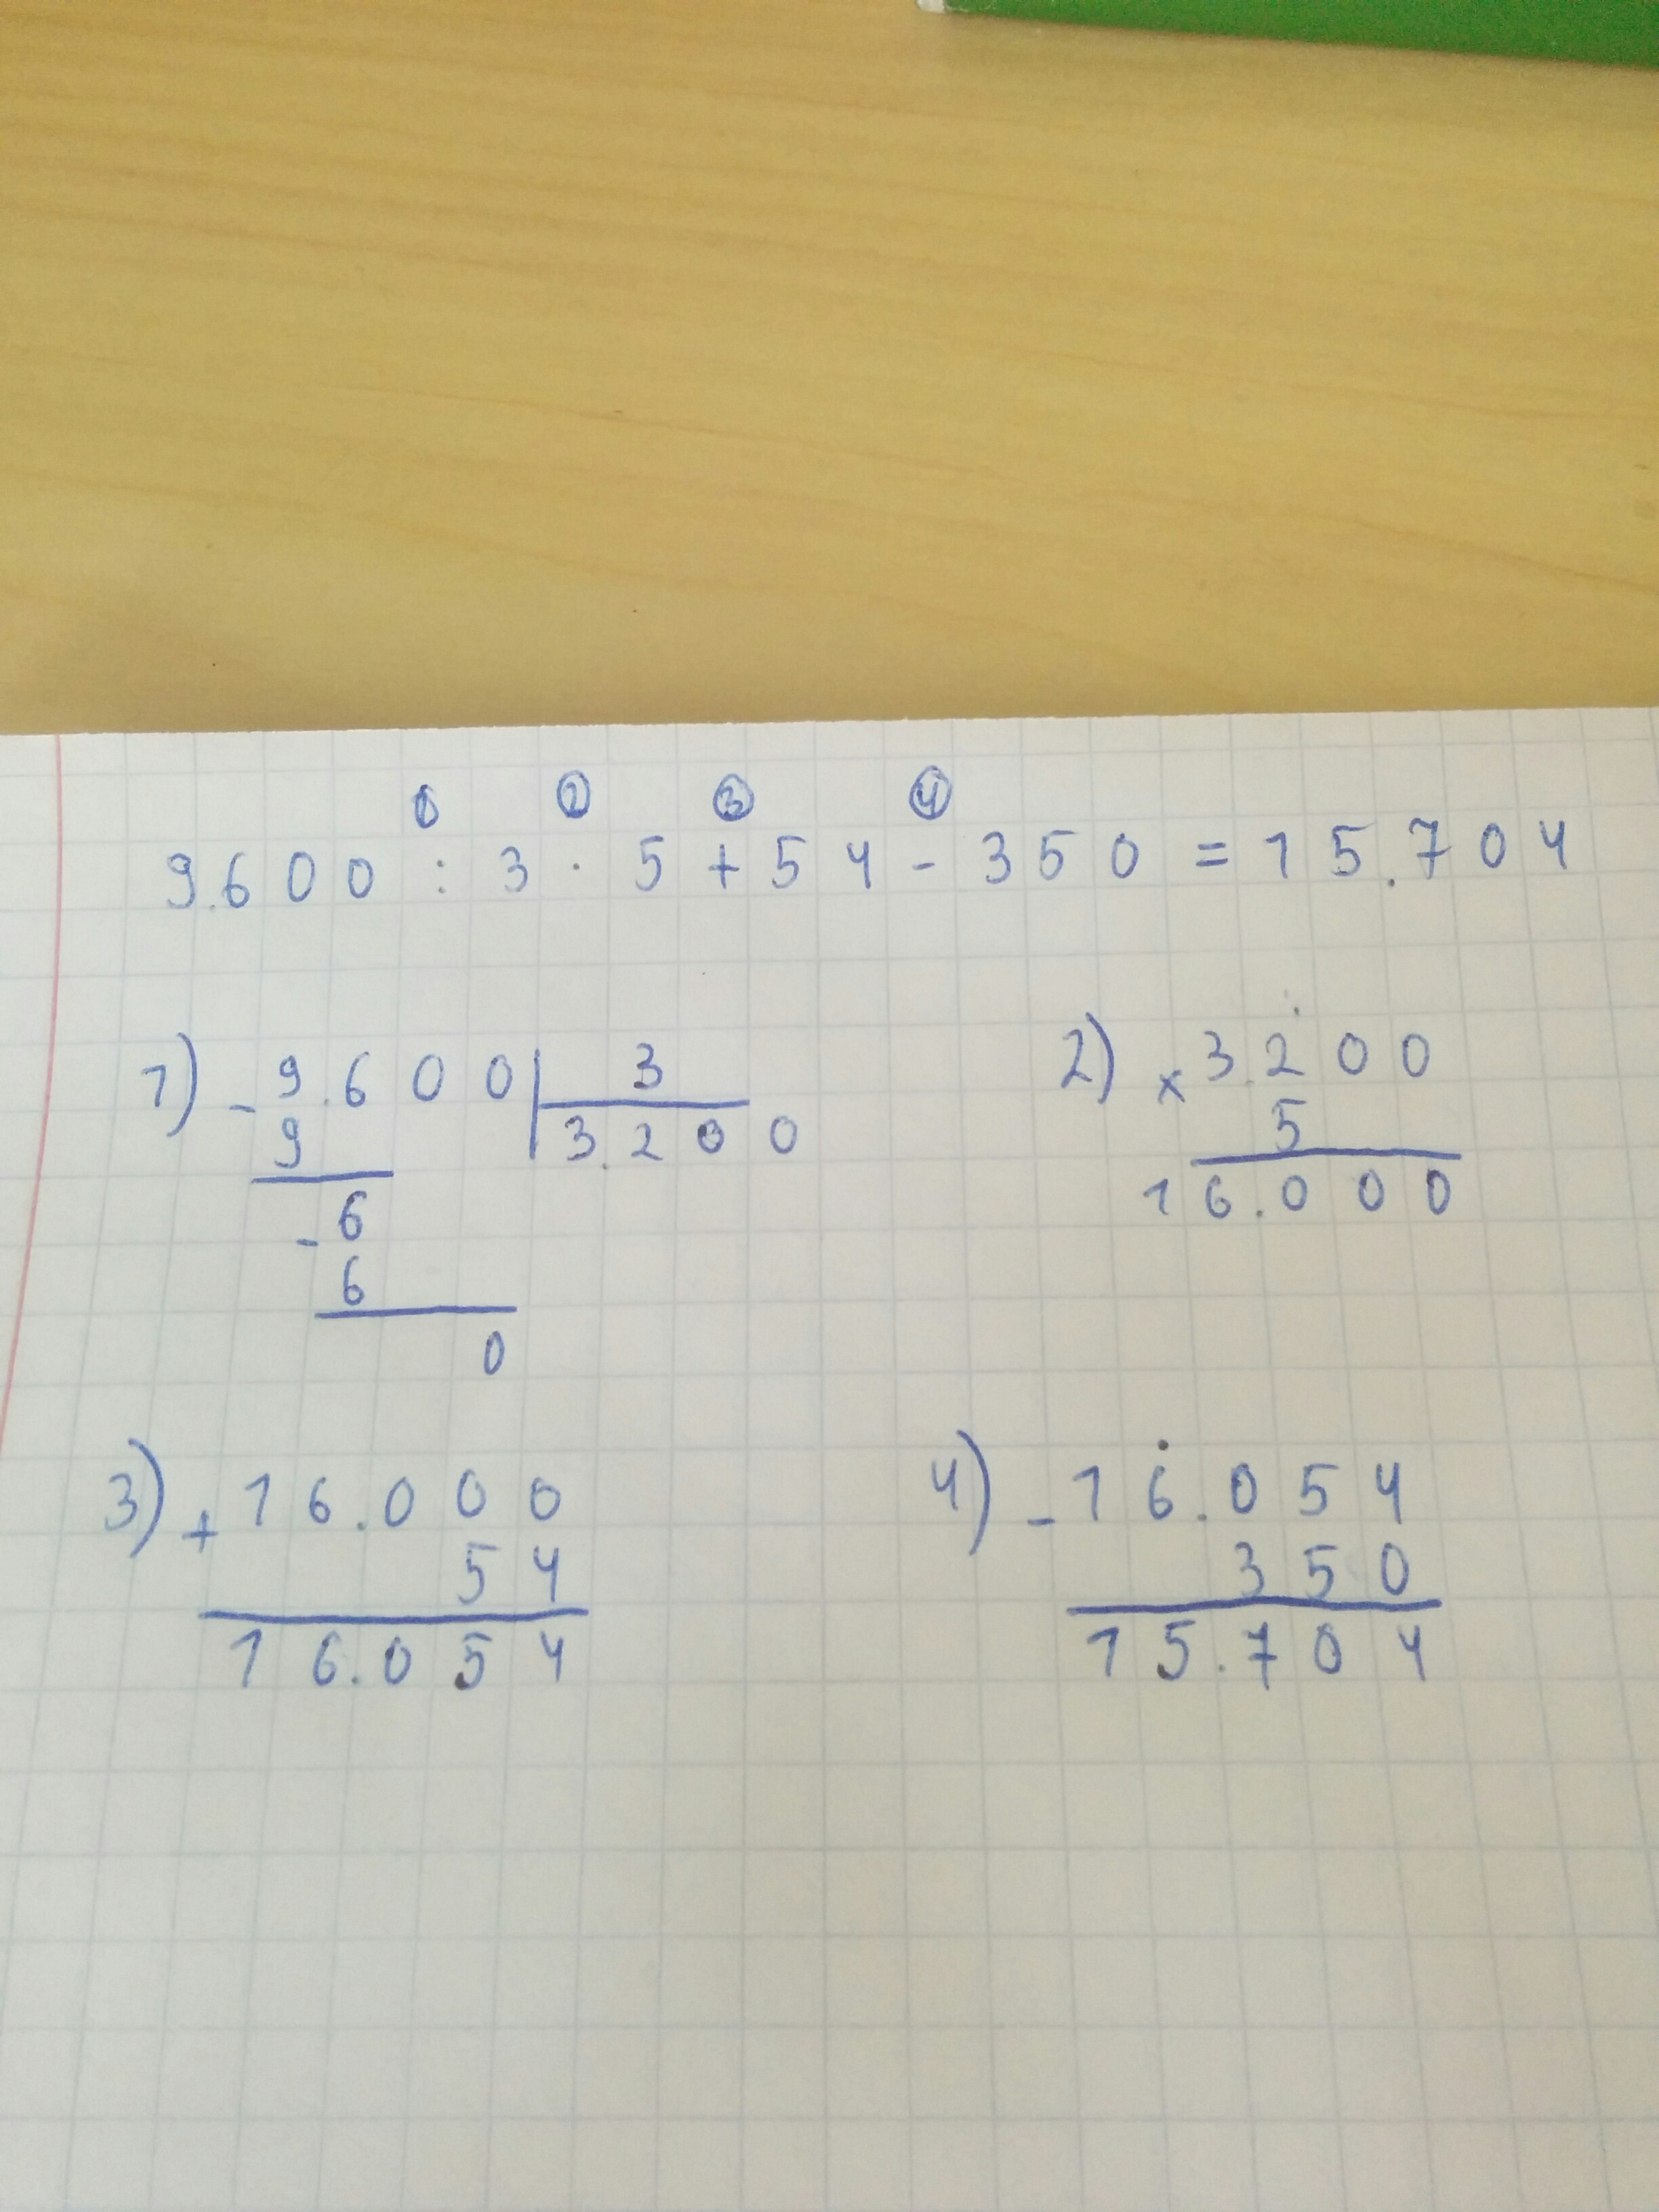 ① ② ③ ④
9.600 : 3 · 5 + 54 - 350 = 15.704
1) - 9.600 | 3
9 3.200
- 6
6
0
2) × 3.200
5
16.000
3) + 16.000
54
16.054
4) - 16.054
350
15.704